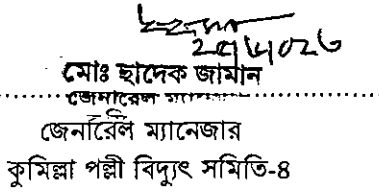 মোঃ ছাদেক জামান
জেনারেল
জেনারেল ম্যানেজার
কুমিল্লা পল্লী বিদ্যুৎ সমিতি-৪